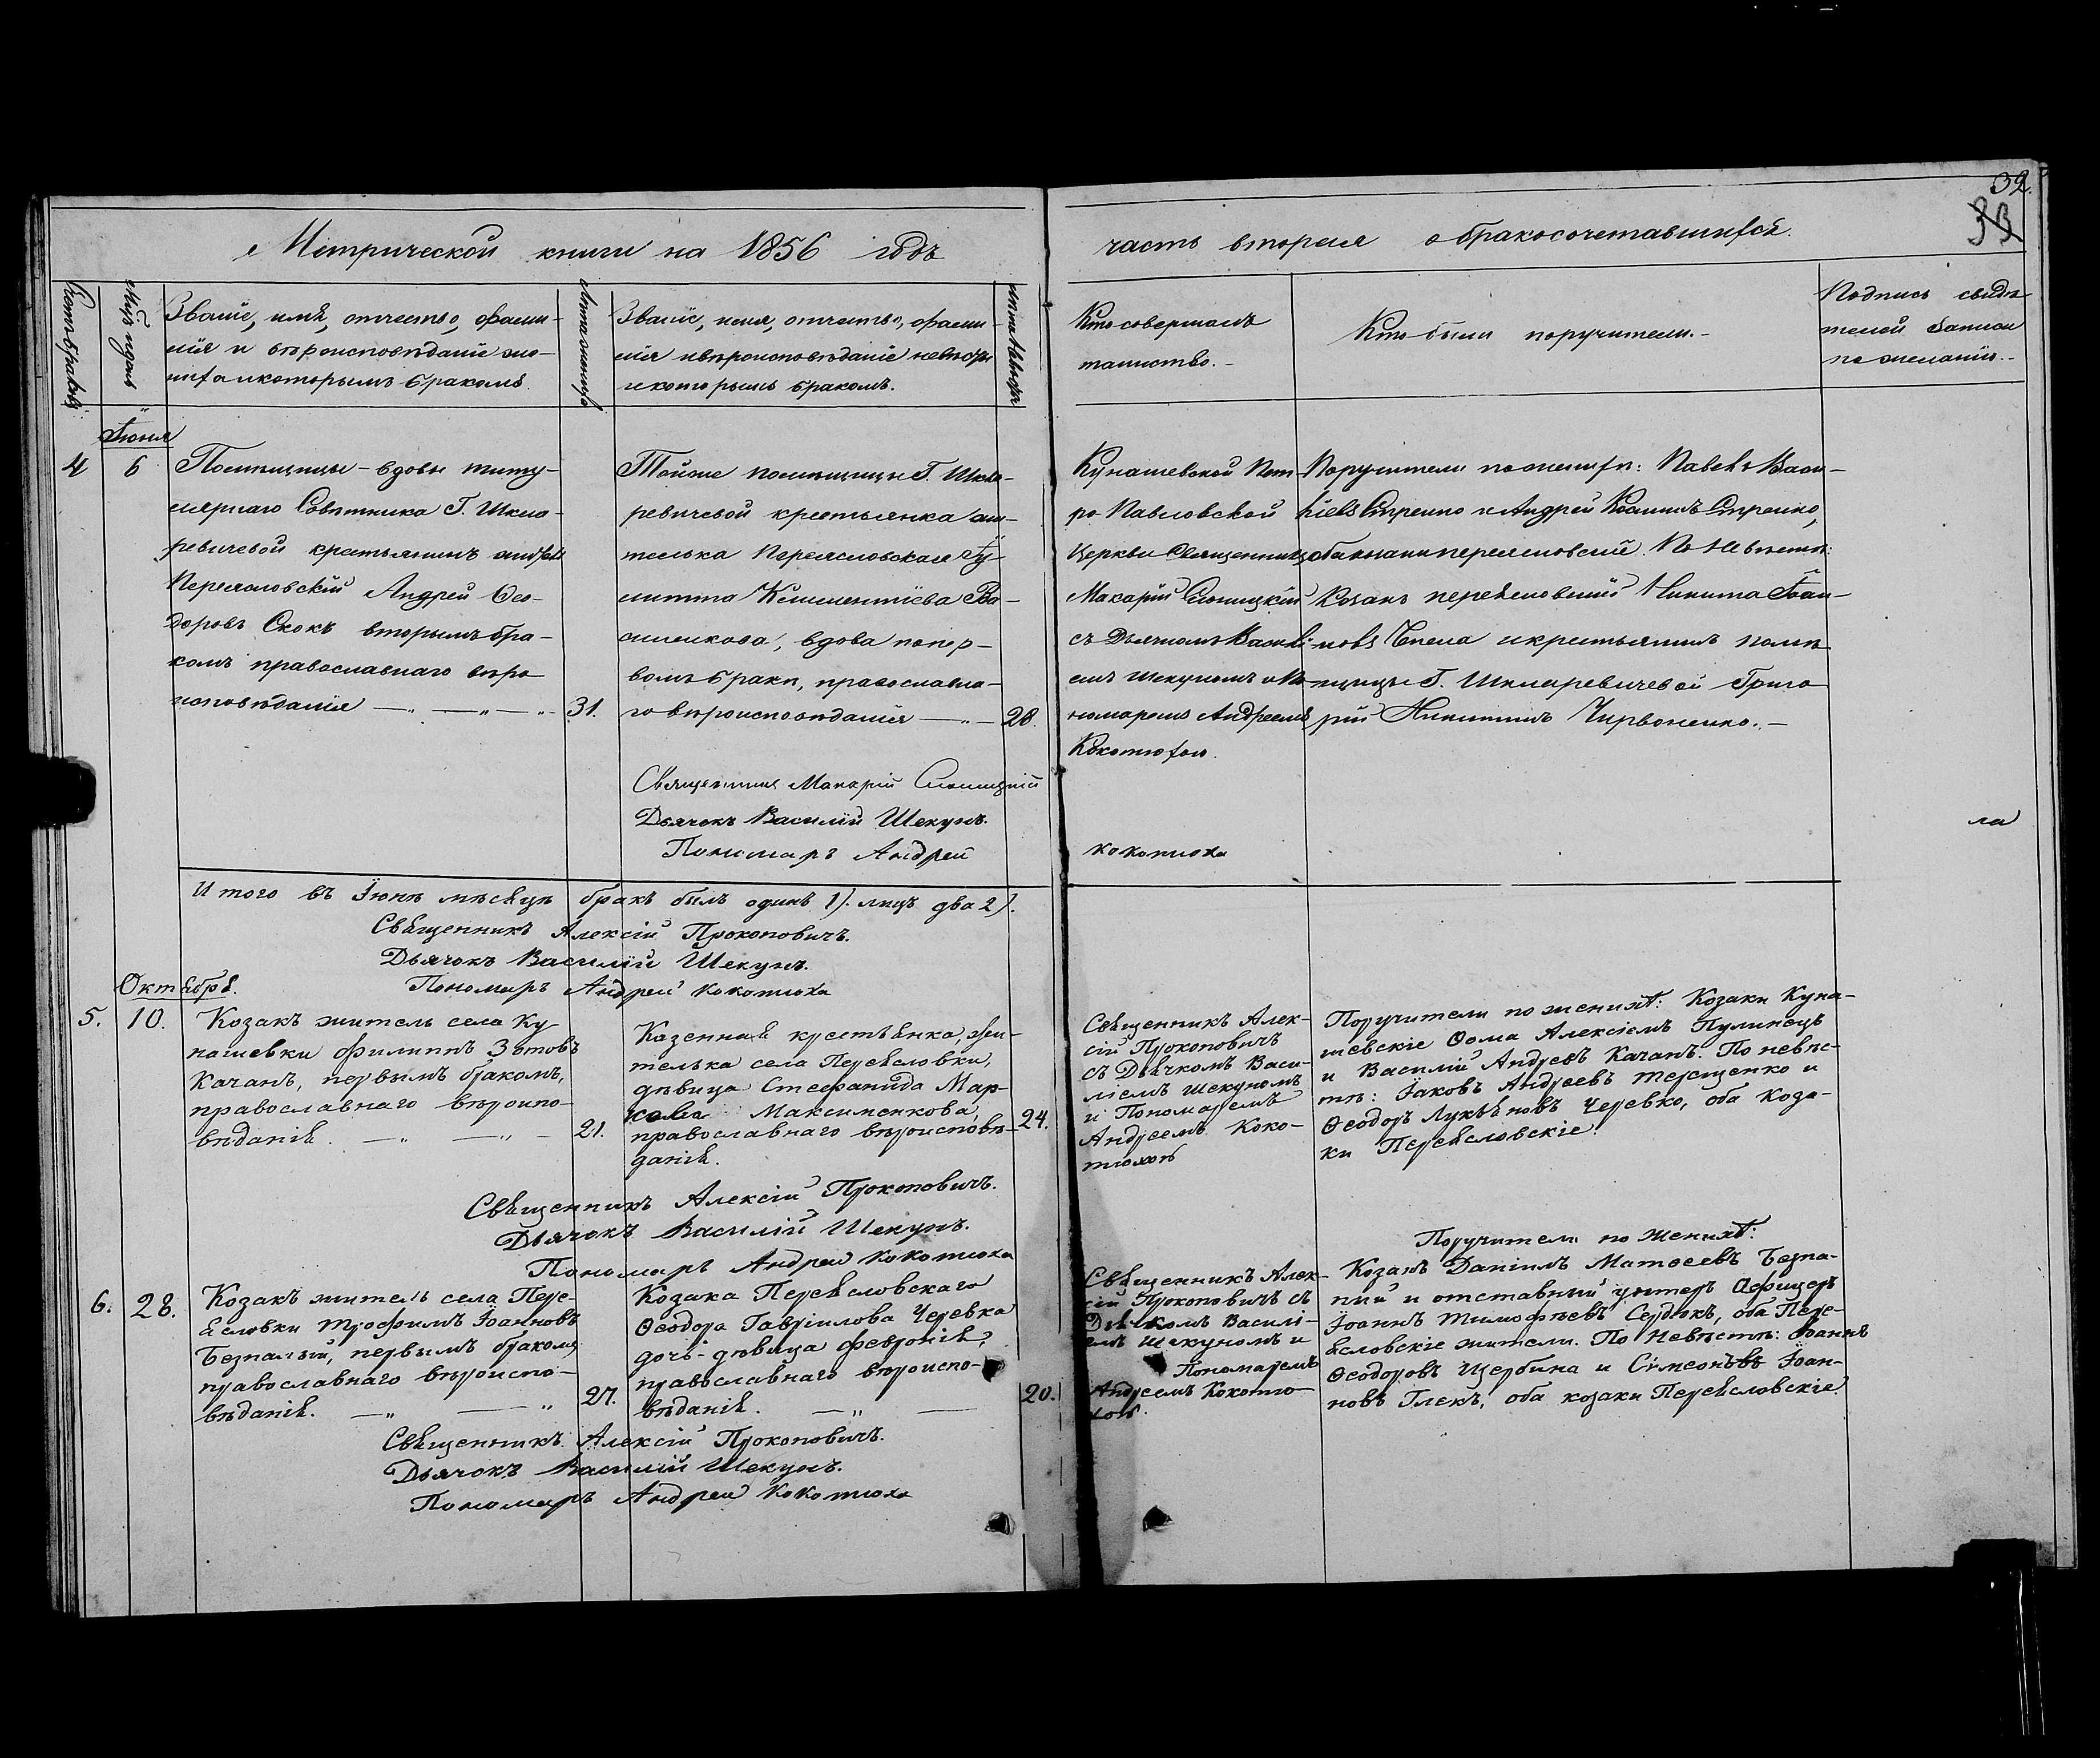 32.
33
Метрической книги на 1856 годъ
часть вторая о бракосочетавшихся.
Счетъ браковъ.
Мѣсяцъ и день
Званіе, имя, отчество, фами-
лія и вѣроисповѣданіе же-
ниха и которымъ бракомъ
Лѣта жениха
Званіе, имя, отчество, фами-
лія и вѣроисповѣданіе невѣсты
и которымъ бракомъ.
Лѣта невѣсты
Кто совершалъ
таинство.-
Кто были поручители.-
Подпись свидѣ-
телей записи
по желанію.-
Іюня
4
6
Помѣщицы-вдовы титу-
лярнаго Совѣтника Г. Шкля-
ревичевой крестьянинъ
Переясловскій Андрей Ѳео-
доровъ Скокъ вторымъ бра-
комъ православнаго вѣро
исповѣданія
31.
Тойже помѣщицы Г. Шкля-
ревичевой крестьянка жи-
телька Переясловская Іу-
литта Климентіева Ва-
силенкова, вдова попер-
вомъ бракѣ, православна-
го вѣроисповѣданія
28.
Кунашевской Пет-
ро-Павловской
Церкви Священникъ
Макарій Слоницкій
съ Дьячкомъ Васили-
емъ Шекуномъ и По-
номаремъ Андреемъ
Кокотюхою.
Поручители по женихѣ: Павелъ Васи-
ліевъ Стренко и Андрей Стренко,
оба козаки переясловскіе. По невѣстѣ:
Козакъ переясловскій Никита Іоан-
новъ Чепела и крестьянинъ помѣ
щицы Г. Шкляревичевой Григо
рій Никитинъ Чирвоненко.-
Священникъ Макарій Слоницкій
Дьячокъ Василій Шекунъ.
Пономарь Андрей
кокотюха
ла
Итого въ Іюнѣ мѣсяцѣ бракъ былъ одинъ 1). лицъ два 2).
Священникъ Алексій Прокоповичъ.
Дьячокъ Василій Шекунъ.
Пономарь Андрей Кокотюха
Октября.
5.
10.
Козакъ житель села Ку
нашевки Филиппъ Зотовъ
Качанъ, первымъ бракомъ,
православнаго вѣроиспо-
вѣданія.
21.
Казенная крестьянка, жи-
телька села Переясловки,
дѣвица Стефанида Мар-
кова Максименкова,
православнаго вѣроисповѣ-
данія.
24.
Священникъ Алек-
сій Прокоповичъ
съ Дьячкомъ Васи-
ліемъ Шекуномъ
и Пономаремъ
Андреемъ Коко-
тюхою
Поручители по женихѣ: Козаки Куна-
шевскіе Ѳома Алексіевъ Пулинецъ
и Василій Андреевъ Качанъ. По невѣс-
тѣ: Іаковъ Андреевъ Терещенко и
Ѳеодоръ Лукьяновъ Черевко, оба коза-
ки Переясловскіе.
Священникъ Алексій Прокоповичъ.
Дьячокъ Василій Шекунъ.
Пономарь Андрей Кокотюха
6.
28.
Козакъ житель села Пере-
ясловки Трофимъ Іоанновъ
Безпалый, первымъ бракомъ
православнаго вѣроиспо-
вѣданія.
27.
Козака Переясловскаго
Ѳеодора Гавріилова Черевка
дочь-дѣвица Февронія,
православнаго вѣроиспо-
вѣданія.
20.
Священникъ Алек-
сій Прокоповичъ съ
Дьячкомъ Василі-
емъ Шекуномъ и
Пономаремъ
Андреемъ Кокотю-
хою.
Поручители по женихѣ:
Козакъ Даніилъ Матѳеевъ Безпа-
лый и отставный унтеръ Офицеръ
Іоаннъ Тимофѣевъ Сердюкъ, оба Пере-
ясловскіе жители. По невѣстѣ: Іоаннъ
Ѳеодоровъ Щербина и Сѵмеонъ Іоан-
новъ Глекъ, оба козаки Переясловскіе.
Священникъ Алексій Прокоповичъ.
Дьячокъ Василій Шекунъ.
Пономарь Андрей Кокотюха